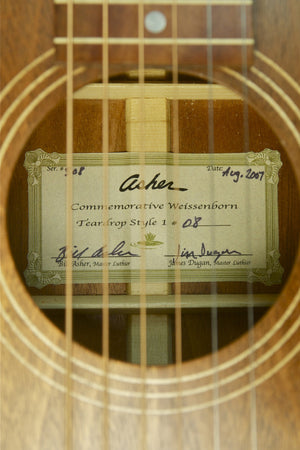 Ser. # 508 Date: Aug. 2007
Asher
Commemorative Weissenborn
Teardrop Style 1 # 08
Bill Asher James Dugan
Bill Asher, Master Luthier James Dugan, Master Luthier